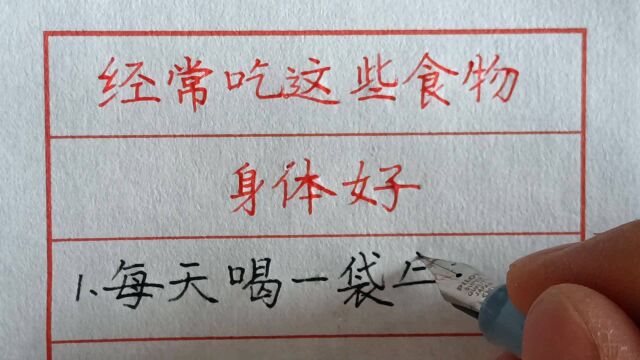 经常吃这些食物
身体好
1.每天喝一袋